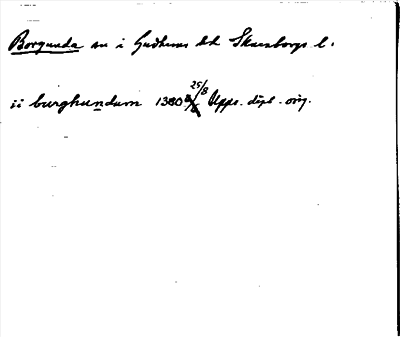 Borgunda sn i Gudhems hd Skaraborgs l.
ii burghundum 1380 25/8 Upps. dipl. orig.